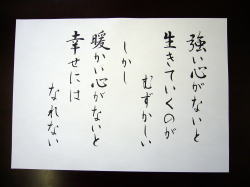 強い心がないと
生きていくのが
むずかしい
しかし
暖かい心がないと
幸せには
なれない